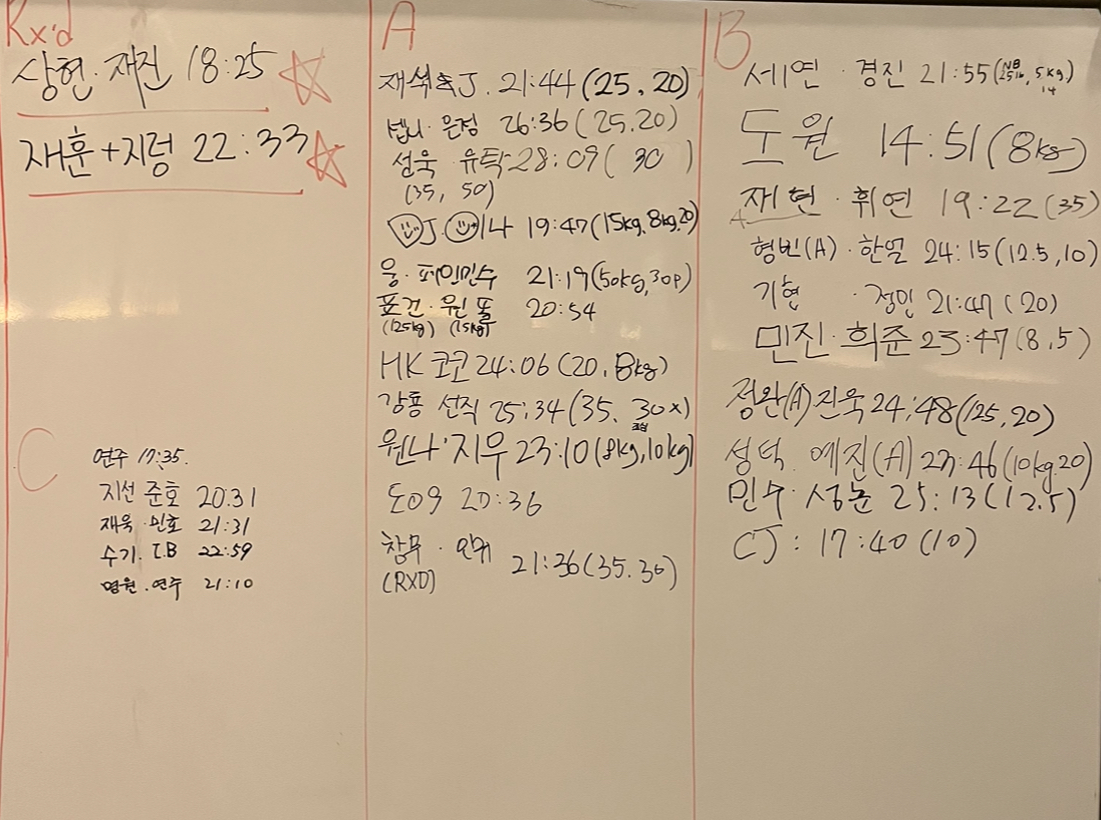 Rx'd
상현·재진 18:25
재훈+지령 22:33
C
연주 17:35.
지선 준호 20.31
재욱·민호 21:31
수기. I.B 22:59
명원.연주 21:10
A
재석 J. 21:44 (25, 20)
은정 26:36 (25.20)
성욱 유탁 28:09 (30)
(35, 50)
J 나 19:47 (15kg, 8kg, 20)
웅·파인민수 21:19 (50kg, 30p)
표건·원 똘 20:54
(12.5kg) (15kg)
HK 코코 24:06 (20, 8kg)
강룡 선직 25:34 (35. 30x)
원나·지우 23:10 (8kg, 10kg)
20:36
참무 · 21:36 (35.30)
(RXD)
B
세연 · 경진 21:55 (15lb, 5kg,)
14
도원 14:51 (8kg)
재현 · 휘연 19:22 (35)
형빈(A)·한얼 24:15 (12.5, 10)
기현 ·정민 21:47 (20)
민진·희준 23:47 (8,5)
정완(A) 진욱 24:48 (125, 20)
성덕. 예진(A) 23:46 (10kg.20)
민수·성훈 25:13 (12.5)
CJ: 17:40 (10)